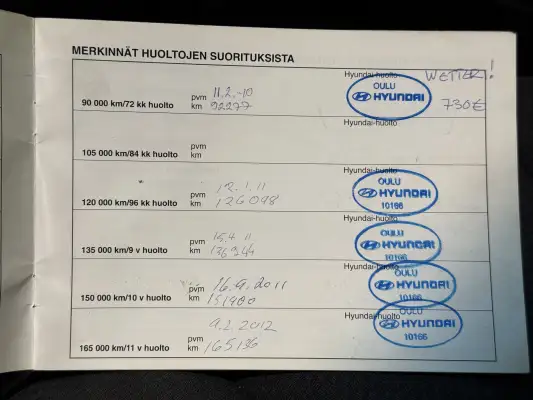 MERKINNÄT HUOLTOJEN SUORITUKSISTA
90 000 km/72 kk huolto pvm 11.2.-10 km 92277 Hyundai-huolto OULU HYUNDAI WETTERI! 730€
105 000 km/84 kk huolto pvm km Hyundai-huolto
120 000 km/96 kk huolto pvm 12.1.11 km 126098 Hyundai-huolto OULU HYUNDAI 10166
135 000 km/9 v huolto pvm 15.4.11 km Hyundai-huolto OULU HYUNDAI 10166
150 000 km/10 v huolto pvm 16.9.2011 km 151900 Hyundai-huolto OULU HYUNDAI 10166
165 000 km/11 v huolto pvm 9.2.2012 km 165136 Hyundai-huolto OULU HYUNDAI 10166